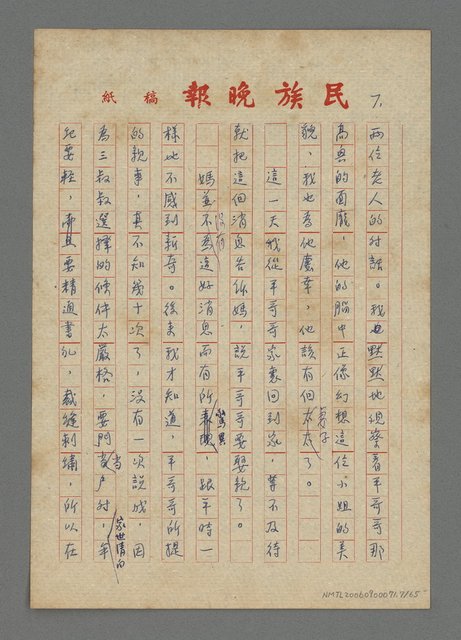 民族晚報 稿紙
7.
兩位老人的對話。我也默默地觀察着平哥哥那
高興的面龐,他的腦中正像幻想這位小姐的美
貌,我也為他慶幸,他該有個妻子了。
這一天我從平哥哥家裏回到家,等不及待
就把這個消息告訴媽,說平哥哥要娶親了。
媽並沒有為這好消息而有所驚異,跟平時一
樣也不感到新奇。後來我才知道,平哥哥所提
的親事,真不知幾十次了,沒有一次說成,因
為三叔叔選擇的條件太嚴格,要門當戶對,家世清白,年
紀要輕,而且要精通書札,裁縫刺繡,所以在
NMTL20060900071.7/65